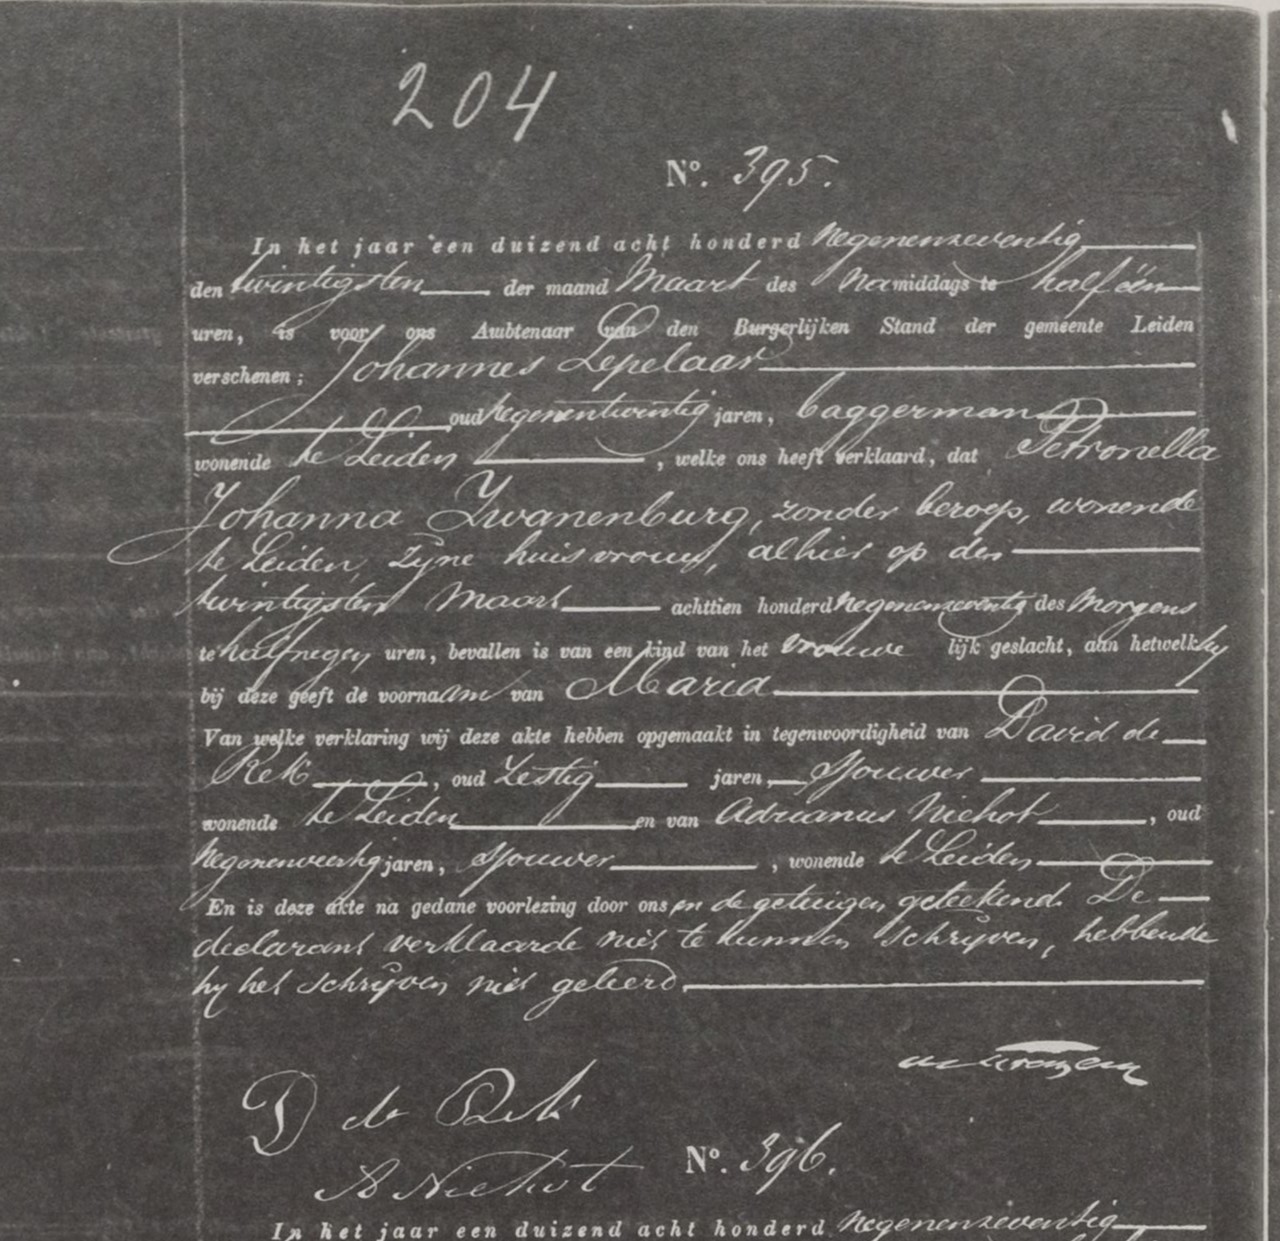 204
No. 395.
In het jaar een duizend acht honderd negenenzeventig
den twintigsten der maand Maart des Namiddags te half één
uren, is voor ons Ambtenaar van den Burgerlijken Stand der gemeente Leiden
verschenen; Johannes Lepelaar
oud negenentwintig jaren, baggerman
wonende te Leiden, welke ons heeft verklaard, dat Petronella
Johanna Zwanenburg, zonder beroep, wonende
te Leiden, zijne huisvrouw, alhier op den
twintigsten Maart achttien honderd negenenzeventig des Morgens
te half negen uren, bevallen is van een kind van het vrouwelijk geslacht, aan hetwelk hij
bij deze geeft de voornaam van Maria
Van welke verklaring wij deze akte hebben opgemaakt in tegenwoordigheid van David de
Rek, oud Zestig jaren, sjouwer
wonende te Leiden en van Adrianus Niehot, oud
Negenenveertig jaren, sjouwer, wonende te Leiden
En is deze akte na gedane voorlezing door ons en de getuigen geteekend. De
declarant verklaarde niet te kunnen schrijven, hebbende
hij het schrijven niet geleerd
D de Rek
A Niehot
No. 396.
In het jaar een duizend acht honderd negenenzeventig